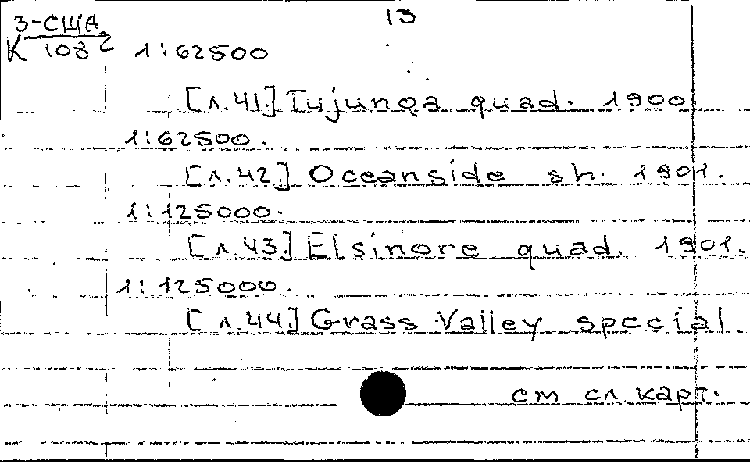 3-США 13
К 108² 1:62500
[л.41] Tujunga quad. 1900
1:62500.
[л.42] Oceanside sh. 1901.
1:125000.
[л.43] Elsinore quad. 1901.
1:125000.
[л.44] Grass Valley special
см сл карт.